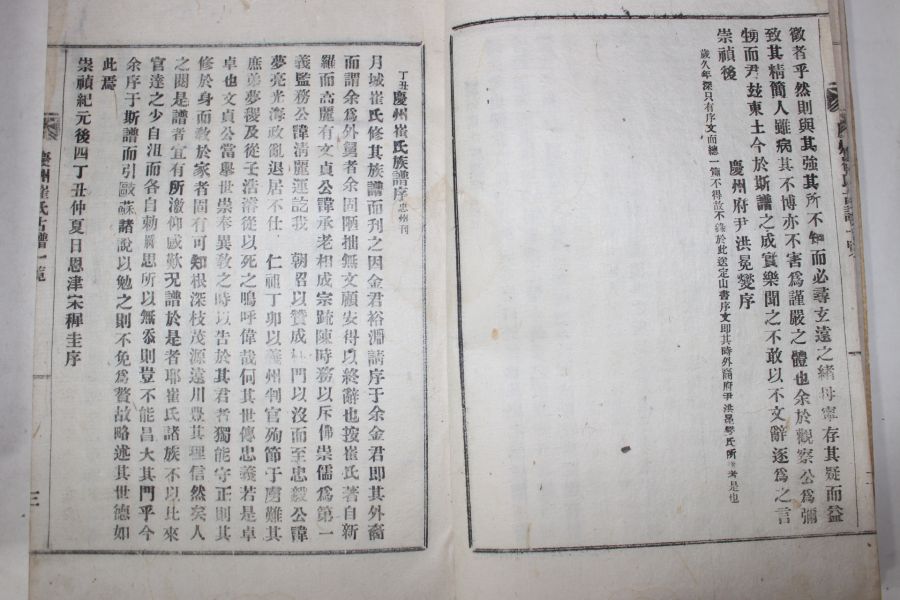 徵者乎然則與其強其所不知而必尋玄遠之緖毋寧存其疑而益
致其精簡人雖病其不博亦不害爲謹嚴之體也余於觀察公爲彌
甥而尹玆東土今於斯譜之成實樂聞之不敢以不文辭逐爲之言
慶州府尹洪冕燮序
崇禎後
歲久年深只有序文而總一篇不得故不錄於此送定山書序文卽其時外裔府尹洪冕燮氏所 考是也
慶州崔氏古譜一覽
丁丑慶州崔氏族譜序忠州刊
月城崔氏修其族譜而刊之因金君裕淵請序于余金君卽其外裔
而謂余爲外舅者余固陋拙無文顧安得以終辭也按崔氏著自新
羅而高麗有文貞公諱承老相成宗䟽陳時務以斥佛崇儒爲第一
義監務公諱淸麗運訖我 朝召以贊成杜門以沒而至忠毅公諱
夢亮光海政亂退居不仕 仁祖丁卯以義州判官殉節于虜難其
庶弟夢稷及從子浩濬從以死之嗚呼偉哉何其世傳忠義若是卓
卓也文貞公當擧世崇奉異敎之時以告於其君者獨能守正則其
修於身而敎於家者固有可知根深枝茂源遠川豊其理信然矣人
之閱是譜者宜有所激仰感歎况譜於是者耶崔氏諸族不以比來
官達之少自沮而各自勅勵思所以無忝則豈不能昌大其門乎今
余序于斯譜而引歐蘇諸說以勉之則不免爲贅故略述其世德如
此焉
崇禎紀元後四丁丑仲夏日恩津宋穉圭序
慶州崔氏古譜一覽
三